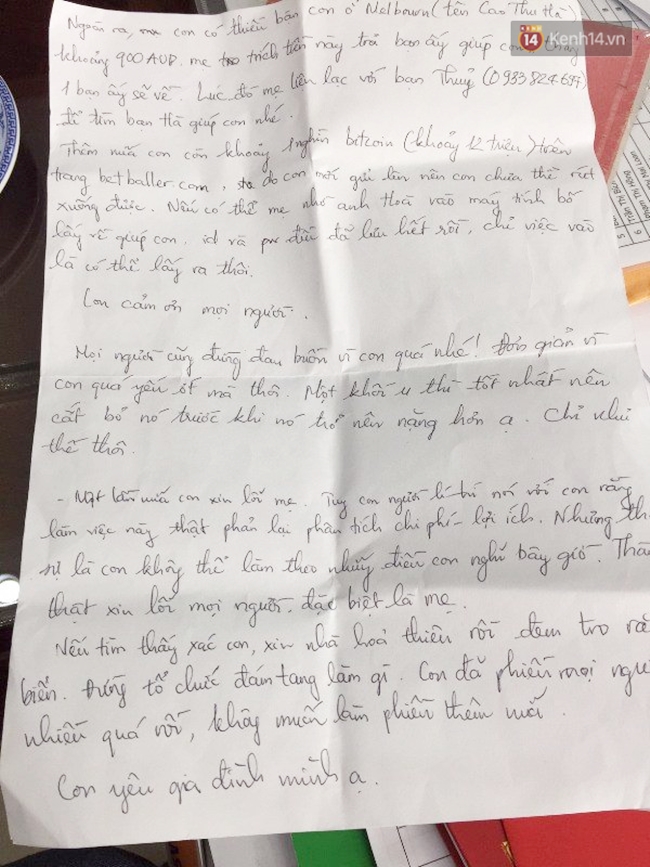 14 Kenh14.vn
Ngoài ra, con có thiếu bạn con ở Melbourn (tên Cao Thu Hà)
khoảng 900 AUD. mẹ trích tiền này trả bạn ấy giúp con. tháng
1 bạn ấy sẽ về. Lúc đó mẹ liên lạc với bạn Thuỷ (0933824697)
để tìm bạn Hà giúp con nhé.
Thêm nữa con còn khoảng 1 nghìn bitcoin (khoảng 12 triệu) trên
trang betballer.com, do con mới gửi lên nên con chưa thể rút
xuống được. Nếu có thể mẹ nhờ anh Hoà vào máy tính bố
lấy về giúp con, id và pw đều đã lưu hết rồi, chỉ việc vào
là có thể lấy ra thôi.
Con cảm ơn mọi người.
Mọi người cũng đừng đau buồn vì con quá nhé! Đơn giản vì
con quá yếu ớt mà thôi. Một khối u thì tốt nhất nên
cắt bỏ nó trước khi nó trở nên nặng hơn ạ. Chỉ như
thế thôi.
- Một lần nữa con xin lỗi mẹ. Tuy con người lí trí nói với con rằng
làm việc này thật phản lại phân tích chi phí - lợi ích. Nhưng
sự là con không thể làm theo những điều con nghĩ bây giờ.
thật xin lỗi mọi người, đặc biệt là mẹ.
Nếu tìm thấy xác con, xin nhà hoả thiêu rồi đem tro
biển. Đừng tổ chức đám tang làm gì. Con đã phiền mọi
nhiều quá rồi, không muốn làm phiền thêm nữa.
Con yêu gia đình mình ạ.